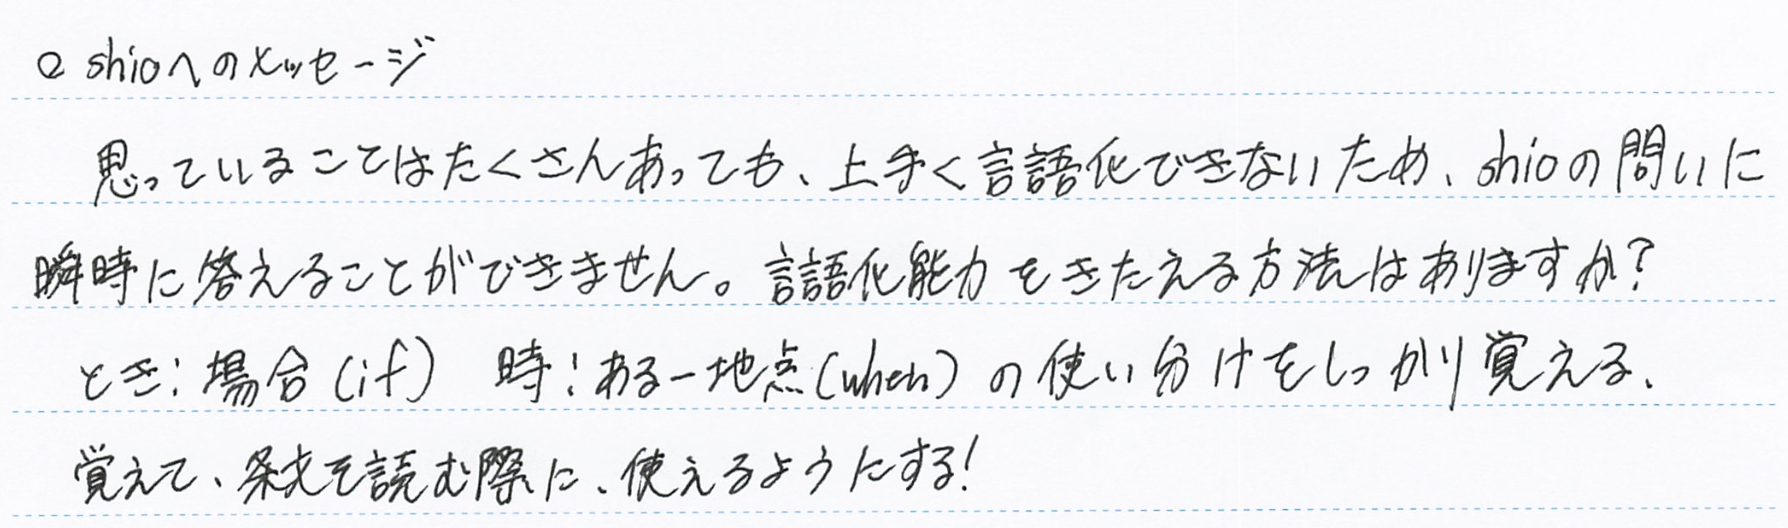 ○ shioへのメッセージ
思っていることはたくさんあっても、上手く言語化できないため、shioの問いに
瞬時に答えることができません。言語化能力をきたえる方法はありますか?
とき:場合(if) 時:ある一地点(when)の使い分けをしっかり覚える、
覚えて、条文を読む際に、使えるようにする!